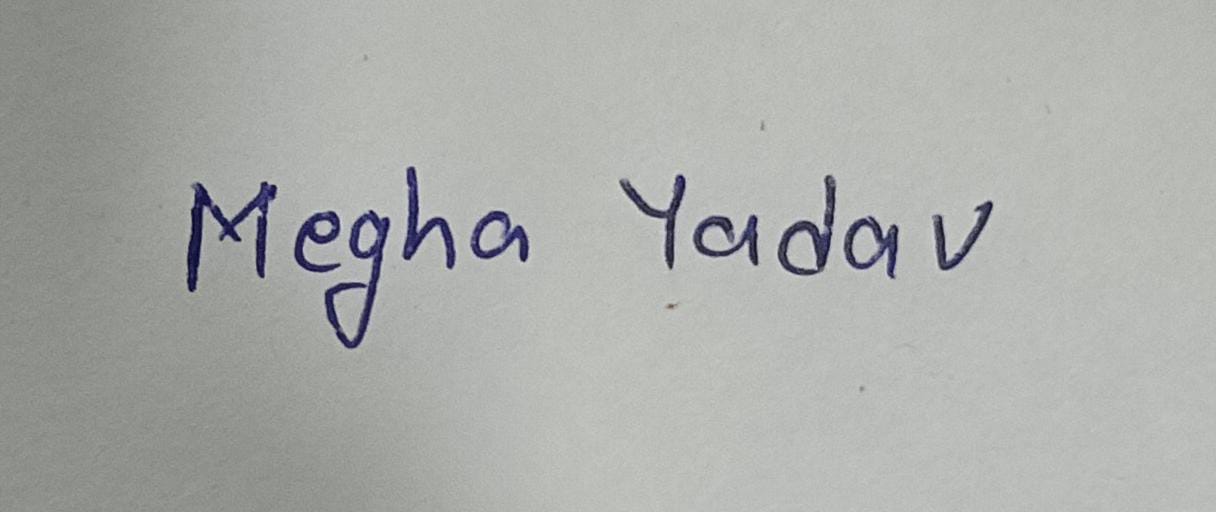 Megha Yadav